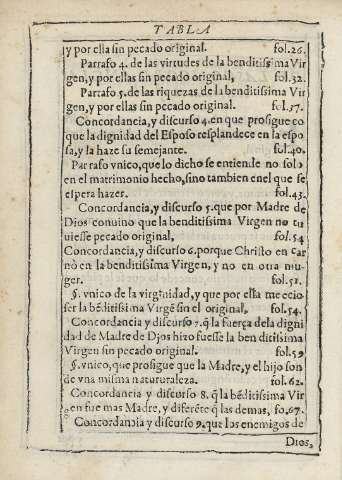 TABLA
y por ella sin pecado original. fol.26.
Parrafo 4. de las virtudes de la benditissima Vir
gen, y por ellas sin pecado original, fol.32.
Parrafo 5. de las riquezas de la benditissima Vir
gen, y por ellas sin pecado original. fol.37.
Concordancia, y discurso 4. en que prosigue co
que la dignidad del Esposo resplandece en la espo
sa, y la haze su semejante. fol.40.
Parrafo vnico, que lo dicho se entiende no solo
en el matrimonio hecho, sino tambien enel que se
espera hazer. fol.43.
Concordancia, y discurso 5. que por Madre de
Dios conuino que la benditissima Virgen no tu
uiesse pecado original, fol.54
Concordancia, y discurso 6. porque Christo en car
nò en la benditissima Virgen, y no en otra mu-
ger. fol.51.
§. vnico de la virginidad, y que por ella mecio
ser la bẽditissima Virgẽ sin el original, fol.54.
Concordancia y discurso 7. q̃ la fuerça dela digni
dad de Madre de Djos hizo fuesse la ben ditissima
Virgen sin pecado original. fol.59
§. vnico, que prosigue que la Madre, y el hijo son
de vna misma natururaleza. fol.62.
Concordancia y discurso 8. q̃ la bẽditissima Vir
gen fue mas Madre, y diferẽte q̃ las demas, fo.67.
Concordancia y discurso 9. que los enemigos de
Dios,